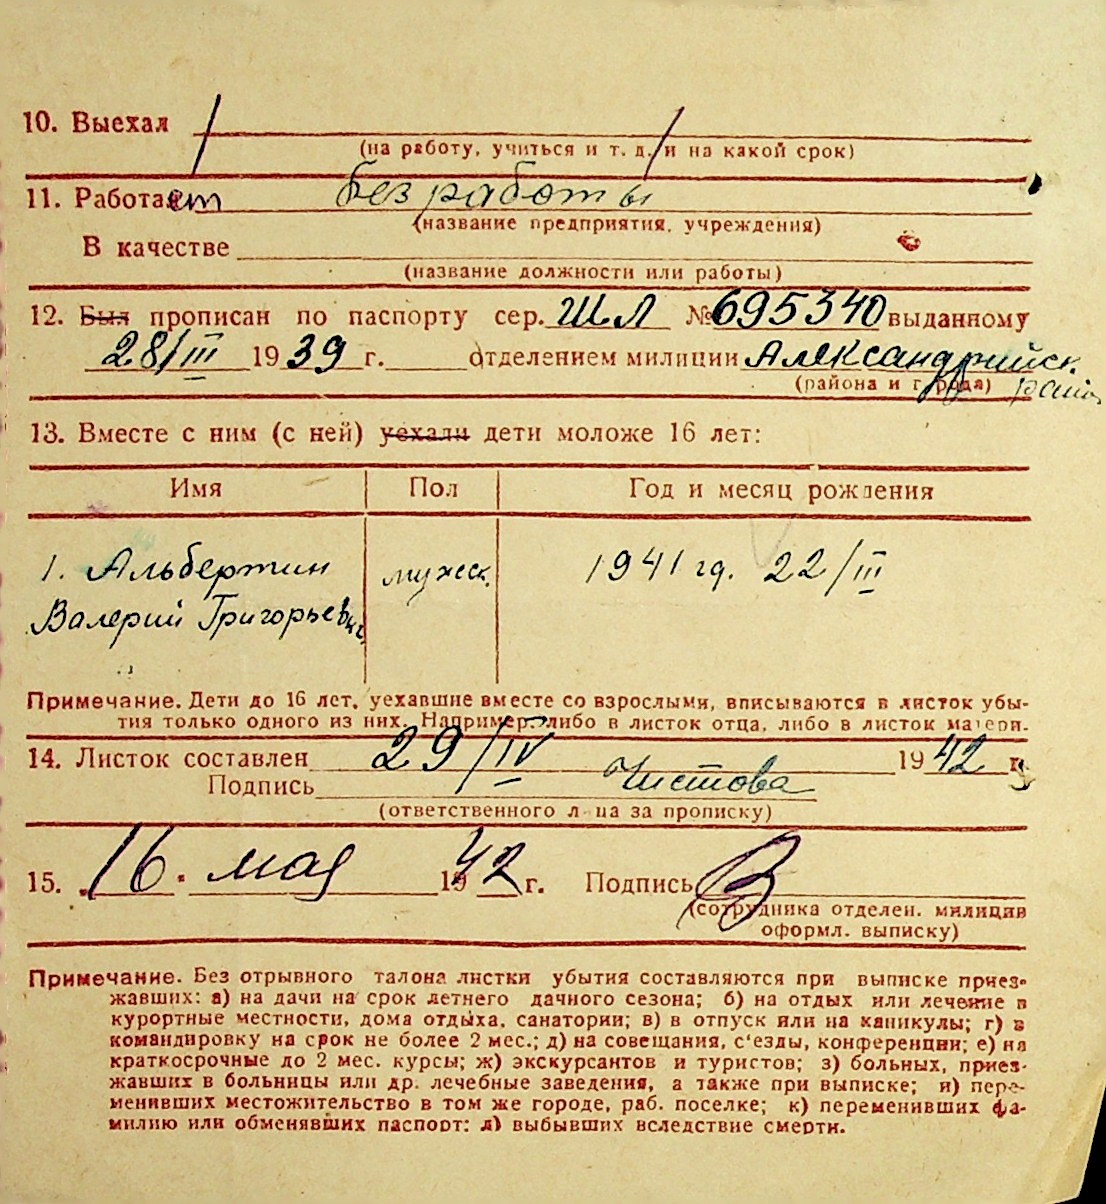 10. Выехал
(на работу, учиться и т. д. и на какой срок)
11. Работает без работы
(название предприятия, учреждения)
В качестве
(название должности или работы)
12. Был прописан по паспорту сер. ШЛ № 695340 выданному
28/III 1939 г. отделением милиции Александрийск.
(района и города) район
13. Вместе с ним (с ней) уехали дети моложе 16 лет:
Имя Пол Год и месяц рождения
1. Альбертин мужск. 1941 гд. 22/III
Валерий Григорьевич
Примечание. Дети до 16 лет, уехавшие вместе со взрослыми, вписываются в листок убы-
тия только одного из них. Например: либо в листок отца, либо в листок матери.
14. Листок составлен 29/IV 1942 г.
Подпись Чистова
(ответственного лица за прописку)
15. 16. мая 1942 г. Подпись
(сотрудника отделен. милиции
оформл. выписку)
Примечание. Без отрывного талона листки убытия составляются при выписке приез-
жавших: а) на дачи на срок летнего дачного сезона; б) на отдых или лечение в
курортные местности, дома отдыха, санатории; в) в отпуск или на каникулы; г) в
командировку на срок не более 2 мес.; д) на совещания, с'езды, конференции; е) на
краткосрочные до 2 мес. курсы; ж) экскурсантов и туристов; з) больных, приез-
жавших в больницы или др. лечебные заведения, а также при выписке; и) пере-
менивших местожительство в том же городе, раб. поселке; к) переменивших фа-
милию или обменявших паспорт: л) выбывших вследствие смерти.